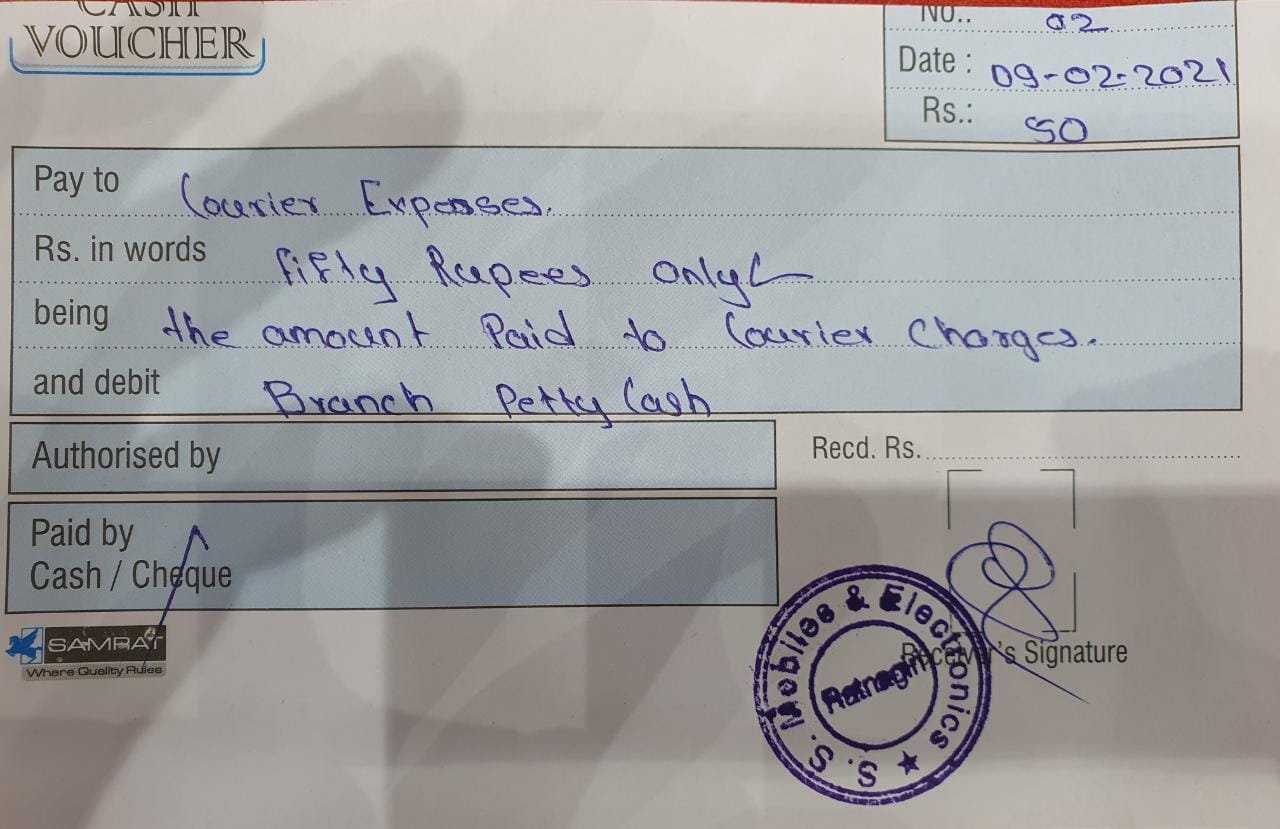 CASH
VOUCHER
No.. 02
Date : 09-02-2021
Rs.: 50
Pay to Courier Expenses.
Rs. in words fifty Rupees only
being the amount Paid to Courier Charges.
and debit Branch Petty Cash
Authorised by
Recd. Rs.
Paid by
Cash / Cheque
SAMRAT
Where Quality Rules
S. S. Mobiles & Electronics ★
Ratnagiri
Receiver's Signature